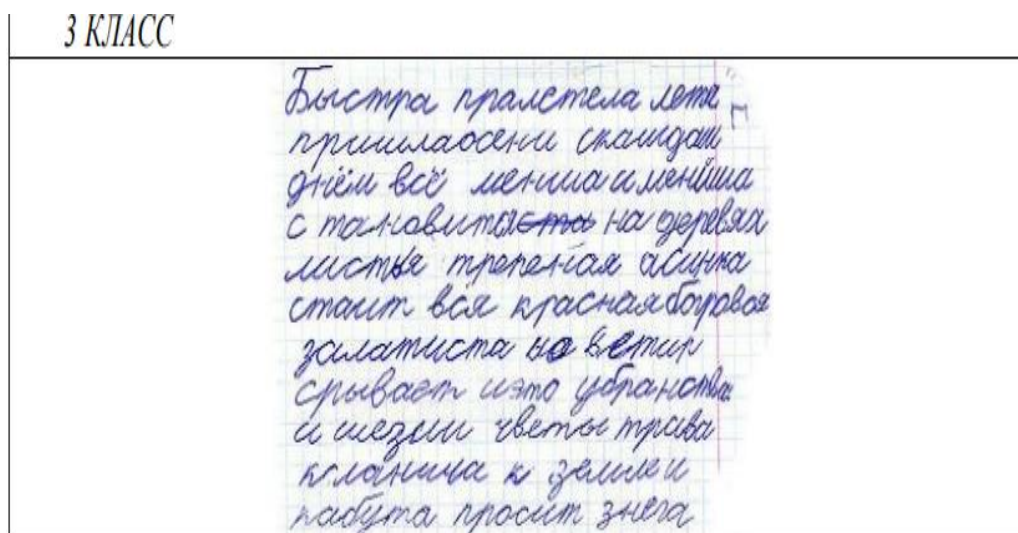 3 КЛАСС
Быстра пралетела лета
пришлаосени скашдам
днём всё менша и менйша
с тановитя ста на деревях
листья трепеная асинка
стаит вся краснаябогровоя
залатиста но ветир
срывает иэто убранства
и шезли чветы трава
кланица к земле и
кабута просит знега